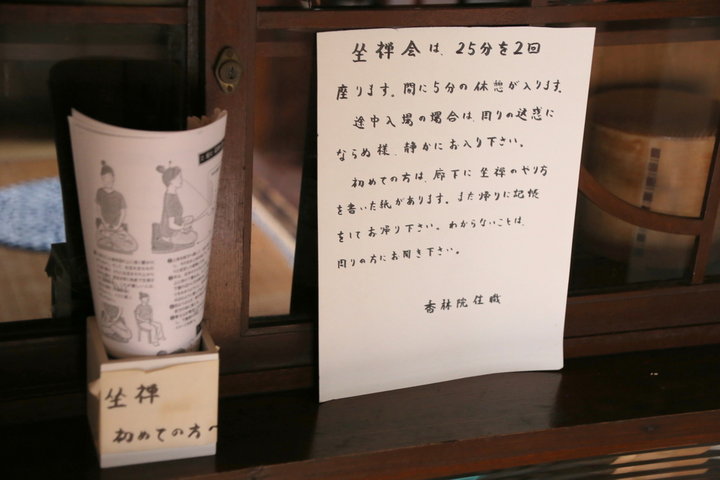 坐禅会は、25分を2回
座ります。間に5分の休憩が入ります。
途中入場の場合は、周りの迷惑に
ならぬ様、静かにお入り下さい。
初めての方は、廊下に坐禅のやり方
を書いた紙があります。また帰りに記帳
をしてお帰り下さい。わからないことは、
周りの方にお聞き下さい。
香林院住職
坐禅
初めての方へ